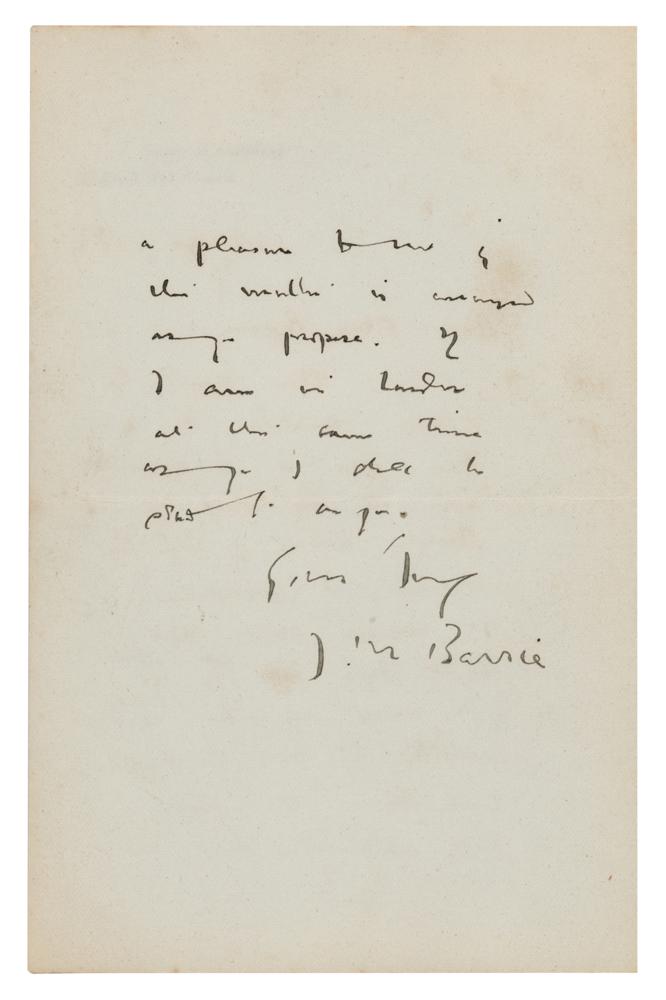 a pleasure to me if
this matter is arranged
as you propose. If
I am in London
at the same time
as you I shall be
glad to see you.
Yours truly
J. M. Barrie